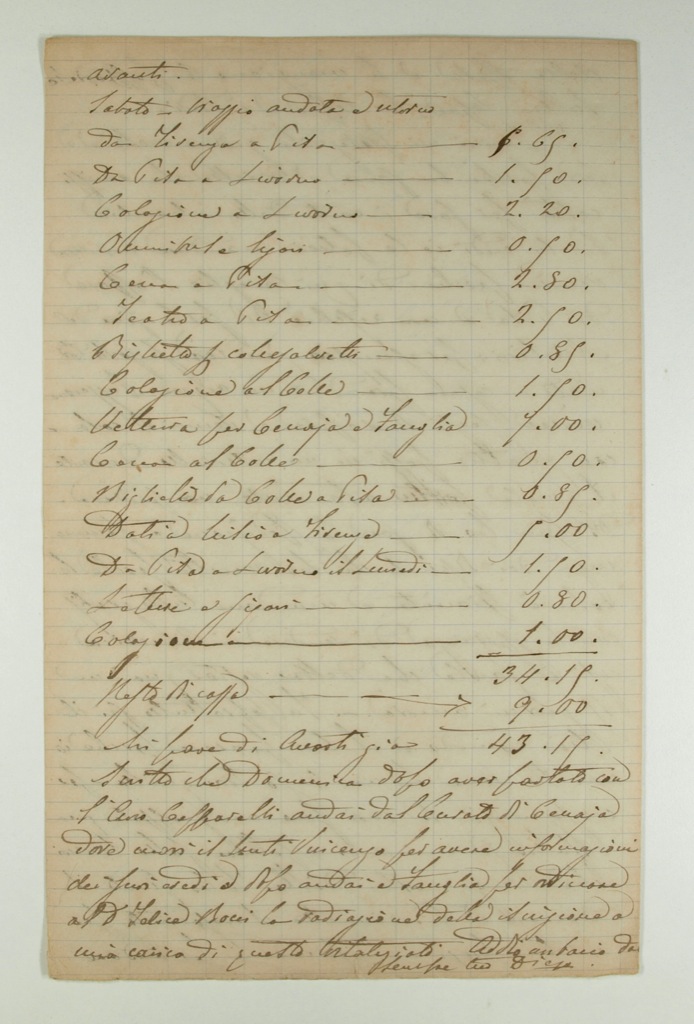 avanti.
Sabato - Viaggio andata e ritorno
da Firenze a Pisa 6.65.
Da Pisa a Livorno 1.50.
Colazione a Livorno 2.20.
Omnibus e sigari 0.50.
Cena a Pisa 2.80.
Teatro a Pisa 2.50.
Biglietto p collesalvetti 0.85.
Colazione al Colle 1.50.
Vettura per Cenaja e Fauglia 7.00.
Cena al Colle 0.50.
Biglietto da Colle a Pisa 0.85.
Dati a a Firenze 5.00
Da Pisa a Livorno il Lunedi 1.50.
Lettere e sigari 0.80.
Colazione 1.00.
34.15.
Resto di cassa 9.00
Mi pare di averti già 43.15.
scritto che Domenica dopo aver parlato con
l' andai dal Curato di Cenaja
dove morì il Vincenzo per avere informazioni
dei suoi eredi e dopo andai a Fauglia per
al D Felice la radiazione della iscrizione a
mio carico di questo Addio un bacio dal
sempre tuo